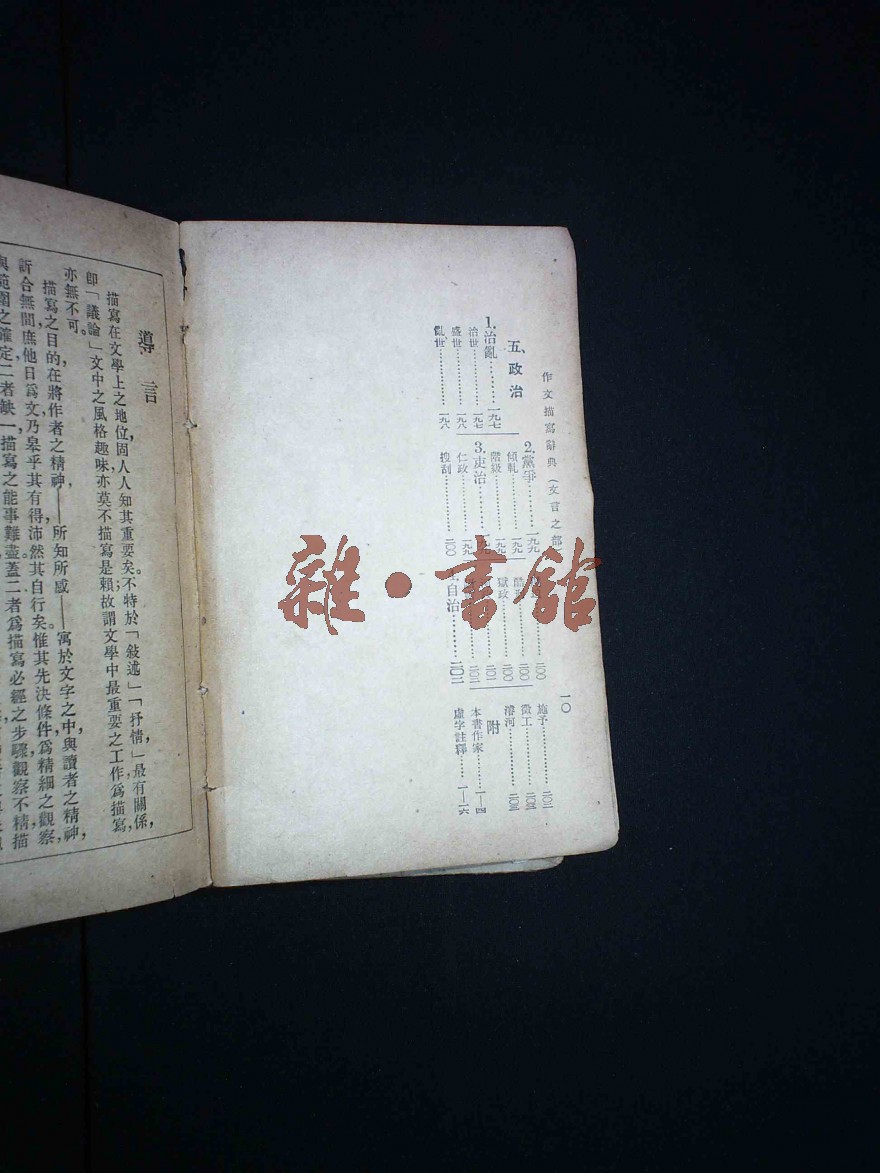 作文描寫辭典（文言之部
一〇
五、政治
1. 治亂⋯⋯⋯⋯一九七
治世⋯⋯⋯⋯一九七
盛世⋯⋯⋯⋯一九八
亂世⋯⋯⋯⋯一九八
2. 黨爭⋯⋯⋯⋯一九九
傾軋⋯⋯⋯⋯一九九
階級⋯⋯⋯⋯一九九
3. 吏治⋯⋯⋯⋯一九九
仁政⋯⋯⋯⋯一九九
搜刮⋯⋯⋯⋯二〇〇
二〇〇
酷
二〇〇
獄政
二〇〇
二〇一
二〇二
自治⋯⋯⋯⋯二〇二
施予⋯⋯⋯⋯二〇二
徵工⋯⋯⋯⋯二〇三
濬河⋯⋯⋯⋯二〇三
附
本書作家⋯⋯⋯⋯一—四
虛字註釋⋯⋯⋯⋯一—一六
導言
描寫在文學上之地位，固人人知其重要矣。不特於「敍述」「抒情」，最有關係，
卽「議論」文中之風格趣味，亦莫不描寫是賴；故謂文學中最重要之工作爲描寫，
亦無不可。
描寫之目的，在將作者之精神——所知所感——寓於文字之中，與讀者之精神，
訢合無間，庶他日爲文，乃皋乎其有得，沛然其自行矣。惟其先決條件，爲精細之觀察，
與範圍之確定，二者缺一，描寫之能事難盡。蓋二者爲描寫必經之步驟，觀察不精，描
雜·書館